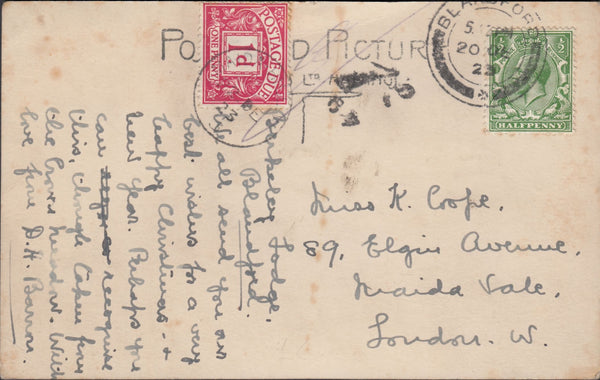 POSTAGE DUE
1D
ONE PENNY
BLANDFORD
20
23
HALFPENNY
Berkeley Lodge,
Blandford.
We all send you our
best wishes for a very
happy Christmas &
New Year. Perhaps you
can recognise
this, though taken from
the Crown Meadows. With
love from D. H. Barron.
Miss K. Coope.
89, Elgin Avenue,
Maida Vale,
London. W.